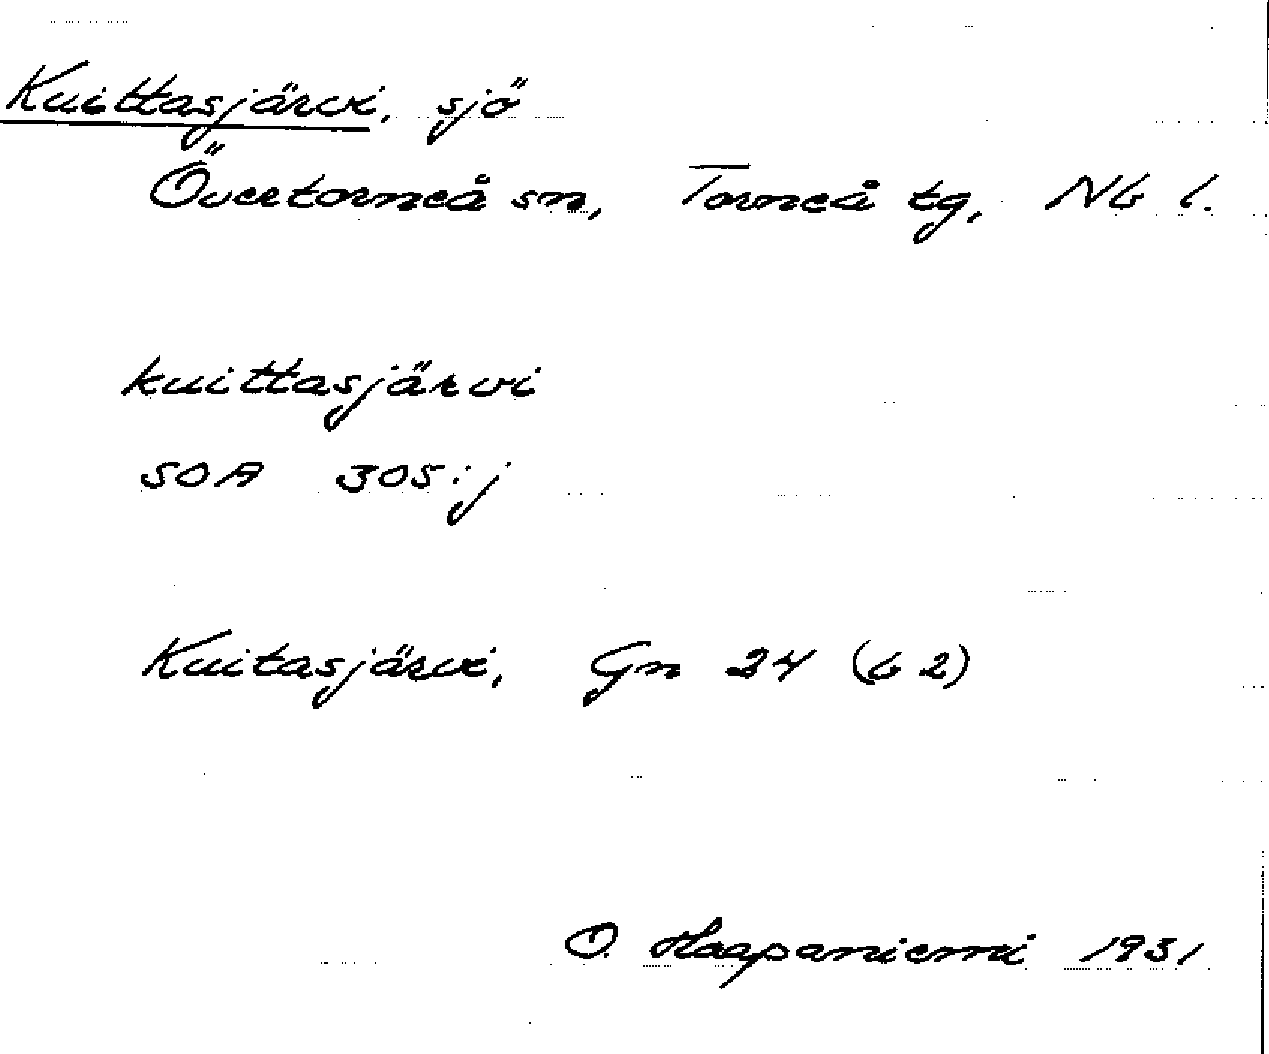 Kuittasjärvi, sjö
Övertorneå sn, Torneå tg, Nb l.
kuittasjärvi
SOA 305:j
Kuitasjärvi, Gn 24 (62)
O. Haapaniemi 1931